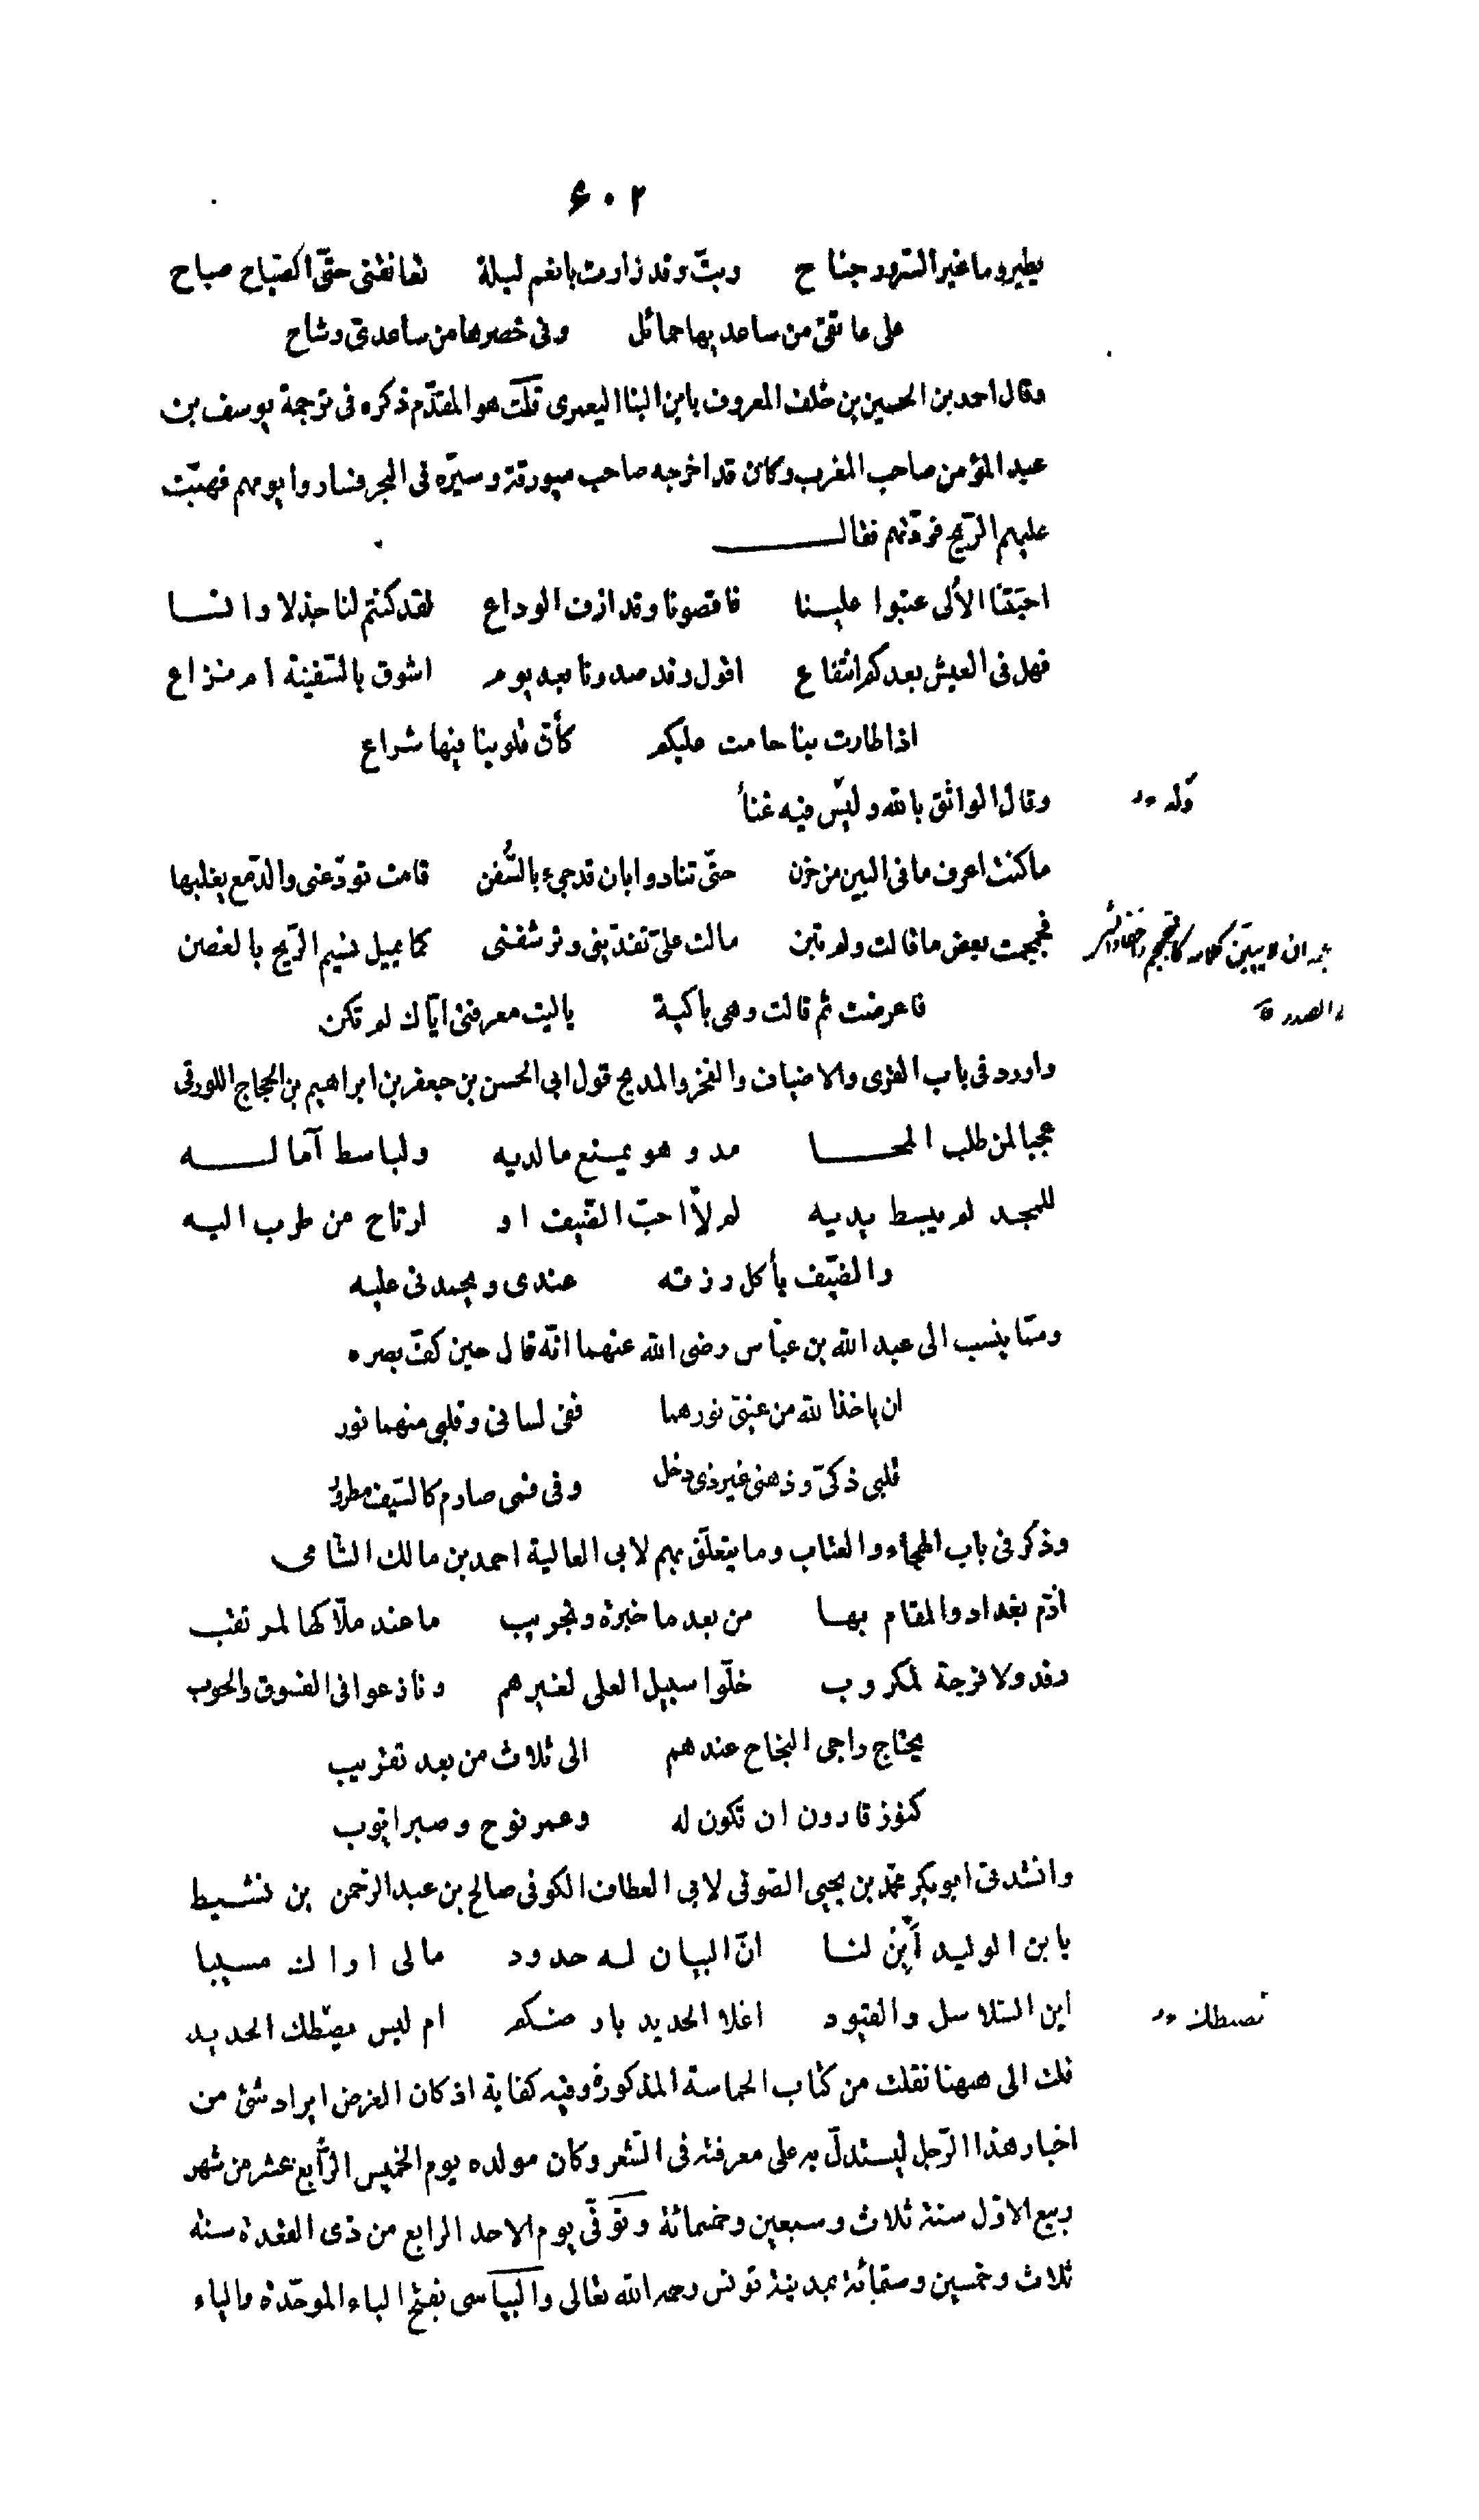 ۶۰۲
يطير وما غير السرور جناح وبتّ وقد زارت بانعم ليلة تعانقنى حتّى الصّباح صباح
على عاتقى من ساعديها حمائل وفى خصرها من ساعدىّ وشاح
وقال احمد بن الحسين بن خلف المعروف بابن البنا اليعمرى قلت هو المقدّم ذكره فى ترجمة يوسف بن
عبد المؤمن صاحب المغرب وكان قد اخرجه صاحب ميورقة وسيّره فى البحر فساروا يومهم فهبّت
عليهم الرّيح فردّتهم فقال
احبّتنا الألى عتبوا علينا فاقصونا وقد ازف الوداع لقد كنتم لنا جذلا وانسا
فهل فى العيش بعدكم انتفاع اقول وقد صدرنا بعد يوم اشوق بالسّفينة ام نزاع
اذا طارت بنا حامت عليكم كأنّ قلوبنا فيها شراع
وقال الواثق بالله وليس فيه غنأ
وله
ما كنت اعرف ما فى البين من حزن حتّى تنادوا بان قد جىء بالسُّفن قامت تودّعنى والدّمع يغلبها
فجمجمت بعض ما قالت ولم تبن مالت علىّ تفدّينى وترشفنى كما يميل نسيم الرّيح بالغصن
ان لا يبيّن كلامه كالتجمجم
الصدر
فاعرضت ثم قالت وهى باكية ياليت معرفتى ايّاك لم تكن
واورد فى باب القرى والاضياف والفخر والمديح قول ابى الحسن بن جعفر بن ابراهيم بن الحجاج اللورقى
عجبا لمن طلب المحا مد وهو يمنع ما لديه ولباسط آماله
للمجد لم يبسط يديه لم لا احبّ الضّيف او ارتاح من طرب اليه
والضيّف يأكل رزقه عندى ويحمدنى عليه
وممّا ينسب الى عبد الله بن عبّاس رضى الله عنهما انّه قال حين كفّ بصره
ان ياخذ الله من عينىّ نورهما ففى لسانى وقلبى منهما نور
قلبى ذكىّ وذهنى غير ذى دخل وفى فمى صارم كالسّيف مطرور
وذكر فى باب الهجاء والعتاب وما يتعلّق بهم لابى العالية احمد بن مالك الشّامى
اذم بغداد والمقام بها من بعد ما خبرة وتجريب ما عند ملّاكها لمرتقب
رفد ولا فرجة لمكروب خلّوا سبيل العلى لغيرهم ونازعوا فى الفسوق والحوب
يحتاج راجى النجاح عندهم الى ثلاث من بعد تقريب
كنوز قارون ان تكون له وعمر نوح وصبر ايّوب
وانشدنى ابو بكر محمّد بن يحيى الصّولى لابى العطاف الكوفى صالح بن عبد الرحمن بن نشيط
يا بن الوليد أبِنْ لنا انّ البيان له حدود مالى اراك مسيبا
اين السّلاسل والقيود اغلا الحديد بارضكم ام ليس يضبطك الحديد
تضبطك
قلت الى ههنا نقلت من كتاب الحماسة المذكورة وفيه كفاية اذ كان الغرض ايراد شئ من
اخبار هذا الرّجل ليستدلّ به على معرفته فى الشّعر وكان مولده يوم الخميس الرّابع عشر من شهر
ربيع الاوّل سنة ثلاث وسبعين وخمسمائة وتوفّى يوم الاحد الرابع من ذى القعدة سنة
ثلاث وخمسين وستمائة بمدينة تونس رحمه الله تعالى والبيّاسى بفتح الباء الموحّدة والياء